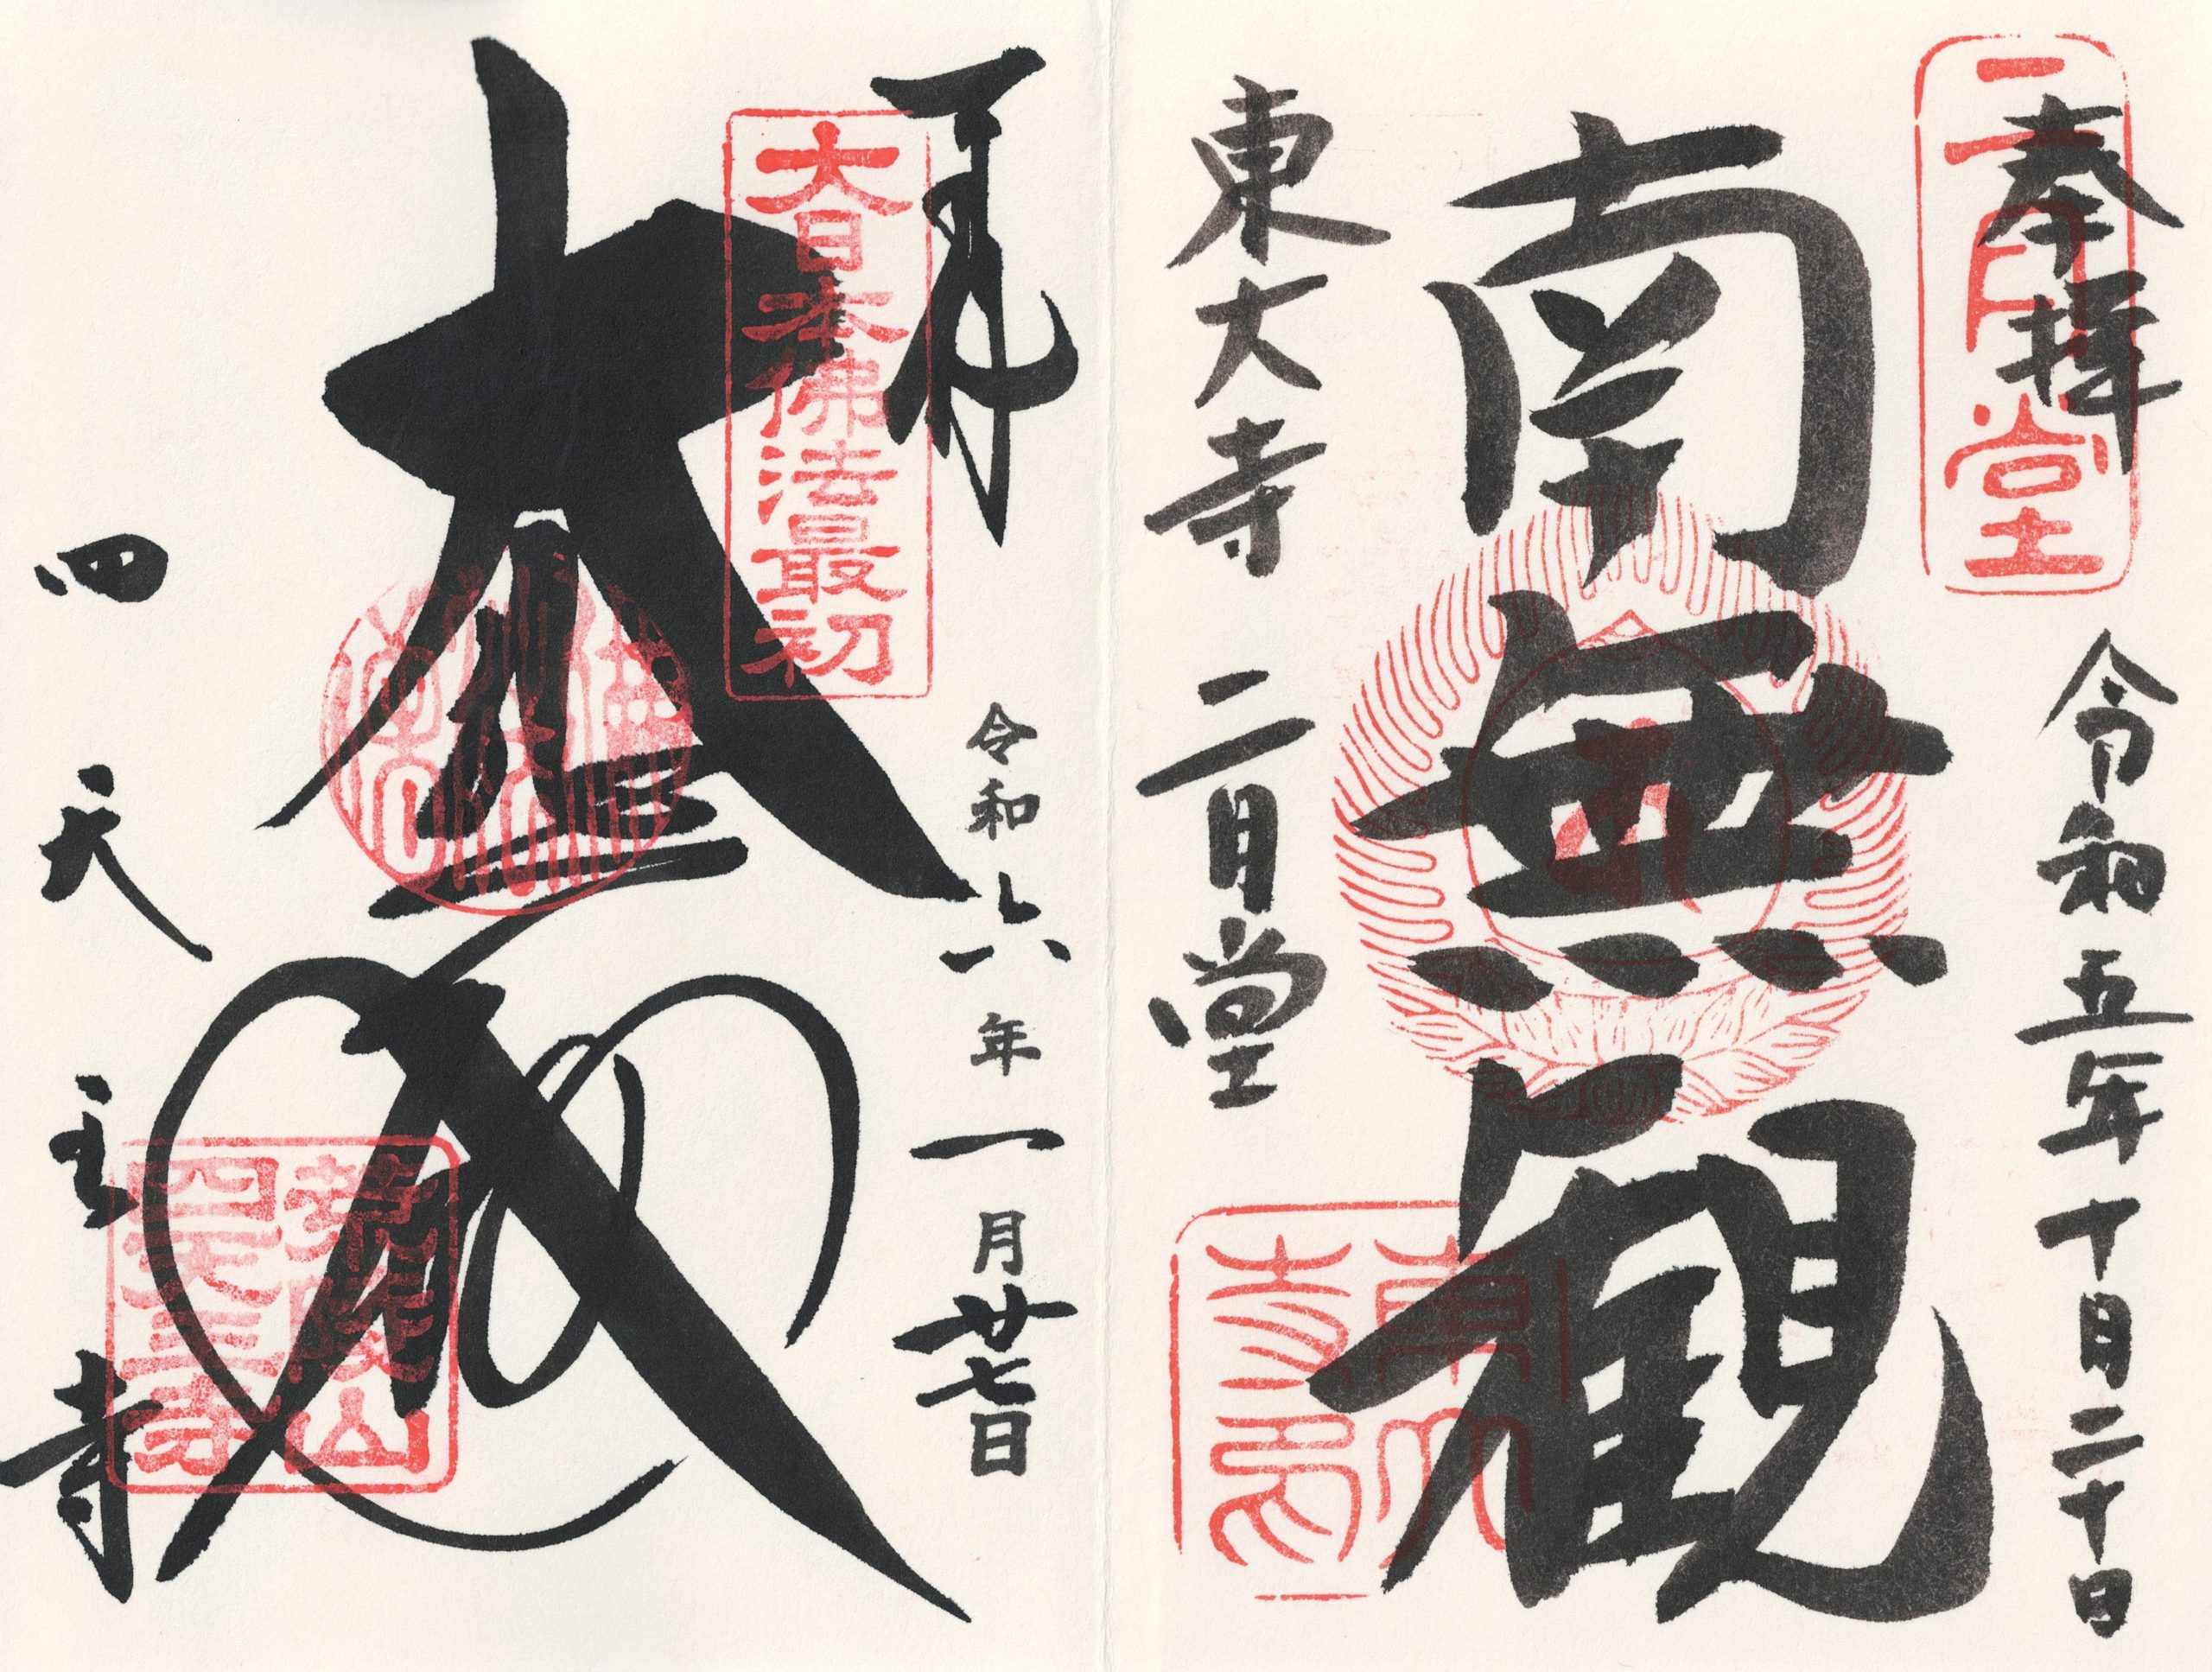 奉拝
二月堂
令和五年十月二十日
南無観
東大寺 二月堂
大日本佛法最初
令和六年一月廿七日
大
四天王寺
荒陵山
四天王寺